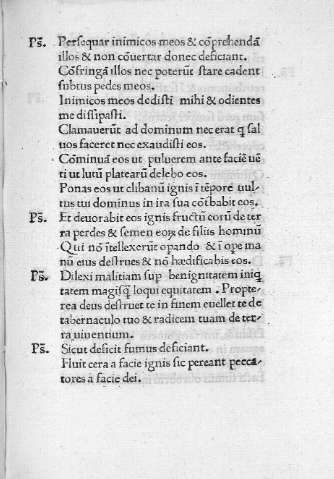 Ps̄. Persequar inimicos meos & cōprehendā
illos & non cōuertar donec deficiant.
Cōfringā illos nec poterūt stare cadent
subtus pedes meos.
Inimicos meos dedisti mihi & odientes
me dissipasti.
Clamauerūt ad dominum nec erat q̄ sal
uos faceret nec exaudisti eos.
Cōminuā eos ut puluerem ante faciē uē
ti ut lutū platearū delebo eos.
Ponas eos ut clibanū ignis ī tēpore uul-
tus tui dominus in ira sua cōtbabit eos.
Ps̄. Et deuorabit eos ignis fructū eorū de ter
ra perdes & semen eoꝝ de filiis hominū
Qui nō ītellexerūt opando & ī ope ma
nū eius destrues & nō hædificabis eos.
Ps̄. Dilexi malitiam sup benignitatem iniq̄
tatem magisq̄ loqui equitatem . Propte-
rea deus destruet te in finem euellet te de
tabernaculo tuo & radicem tuam de ter-
ra uiuentium.
Ps̄. Sicut deficit fumus deficiant.
Fluit cera a facie ignis sic pereant pecca-
tores a facie dei.